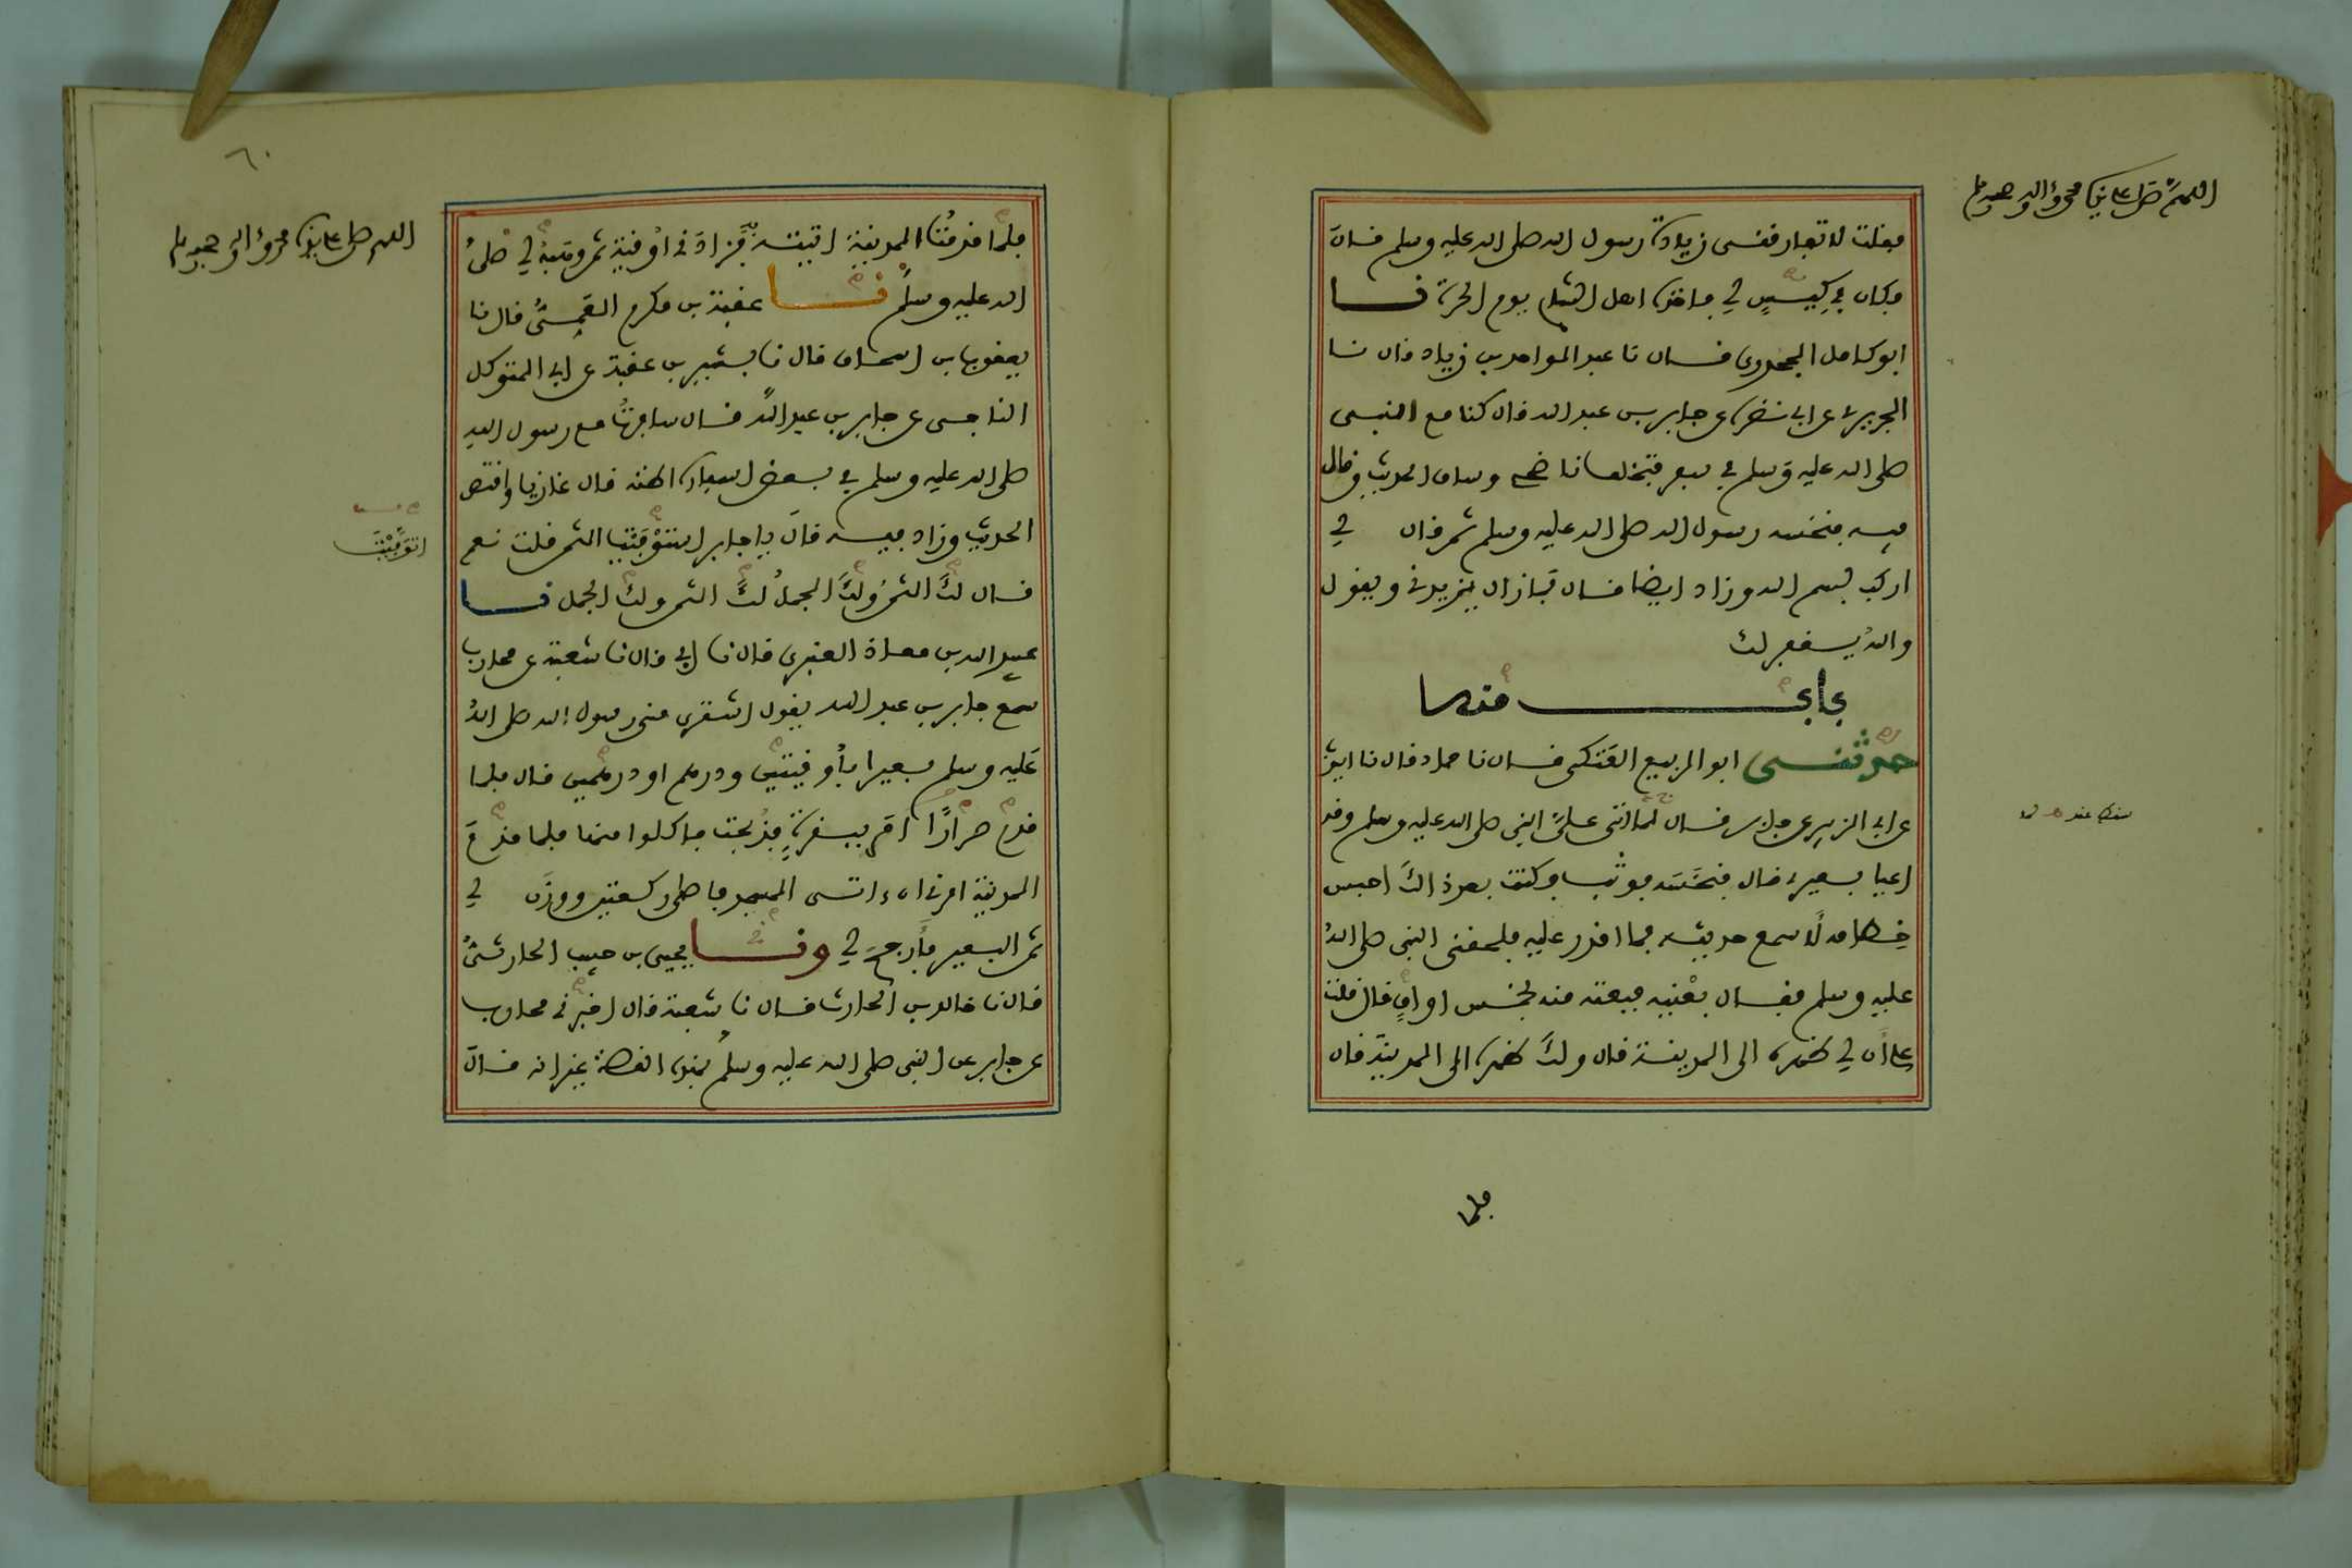 اللهم صل على نبينا محمد وآله وصحبه وسلم
فقلت لا تفارقنى زيادة رسول الله صلى الله عليه وسلم قال
فكان في كيس لي فاخذه اهل الشام يوم الحرة نا
ابو كامل الجحدري قال نا عبد الواحد بن زياد قال نا
الجريري عن ابي نضرة عن جابر بن عبد الله قال كنا مع النبي
صلى الله عليه وسلم في سفر فتخلف ناضحي وساق الحديث وقال
فيه فنخسه رسول الله صلى الله عليه وسلم ثم قال لي
اركب بسم الله وزاد ايضا قال فما زال يزيدني ويقول
والله يغفر لك
باب منه
حدثنى ابو الربيع العتكي قال نا حماد قال نا ايوب
عن ابي الزبير عن جابر قال لما اتى علي النبي صلى الله عليه وسلم وقد
اعيا بعيري قال فنخسه فوثب فكنت بعد ذلك احبس
خطامه لأسمع حديثه فما اقدر عليه فلحقني النبي صلى الله
عليه وسلم فقال بعنيه فبعته منه بخمس اواق قال قلت
على أن لي ظهره الى المدينة قال ولك ظهره الى المدينة قال
فلما
٦٠
اللهم صل على نبينا محمد وآله وصحبه وسلم
فلما قدمت المدينة اتيته به فزادني أوقية ثم وهبه لي صلى
الله عليه وسلم نا عقبة بن مكرم العمي قال نا
يعقوب بن اسحاق قال نا بشير بن عقبة عن ابي المتوكل
الناجي عن جابر بن عبد الله قال سافرت مع رسول الله
صلى الله عليه وسلم في بعض اسفاره اظنه قال غازيا واقتص
الحديث وزاد فيه قال يا جابر استوفيت الثمن قلت نعم
قال لك الثمن ولك الجمل لك الثمن ولك الجمل نا
عبيد الله بن معاذ العنبري قال نا ابي قال نا شعبة عن محارب
سمع جابر بن عبد الله يقول اشترى منى رسول الله صلى الله
عليه وسلم بعيرا بأوقيتين ودرهم او درهمين قال فلما
قدم صرارا امر ببقرة فذبحت فاكلوا منها فلما قدم
المدينة امرني ان اتى المسجد فاصلى ركعتين ووزن لي
ثمن البعير فأرجح لي ونا يحيى بن حبيب الحارثي
قال نا خالد بن الحارث قال نا شعبة قال اخبرني محارب
عن جابر عن النبي صلى الله عليه وسلم بهذه القصة غير انه قال